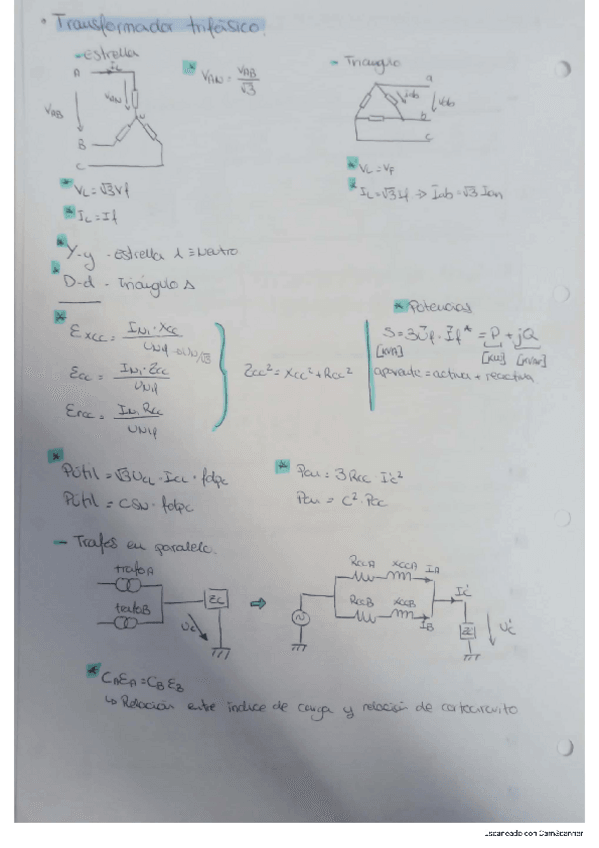 • Transformador trifásico:
- Estrella
* VAN = VAB/√3
- Triangulo
A
IL
VAN
N
VAB
B
C
a
Iab
Vab
b
c
* VL = √3Vf
* IL = If
* VL = VF
* IL = √3If ⇒ Iab = √3 Ian
* Y-y - estrella λ ≡ Neutro
* D-d - Triángulo Δ
* Potencias
* εXCC = IN1·XCC / UN1f → UN/√3
εCC = IN1·ZCC / UN1f
εRCC = IN1 RCC / UN1f
ZCC² = XCC² + RCC²
S = 3Uf · If* = P + jQ
[KVA] [KW] [KVAr]
aparente = activa + reactiva
* PÚtil = √3UCL · ICL · fdpc
PÚtil = CSN · fdpc
* Pcu = 3RCC · I'c²
Pcu = C² · Pcc
- Trafos en paralelo.
trafoA
trafoB
ZC
UC
⇒
RCCA XCCA IA
RCCB XCCB IB
IC'
UC'
* CAεA = CBεB
↳ Relación entre índice de carga y relación de cortocircuito
Escaneado con CamScanner